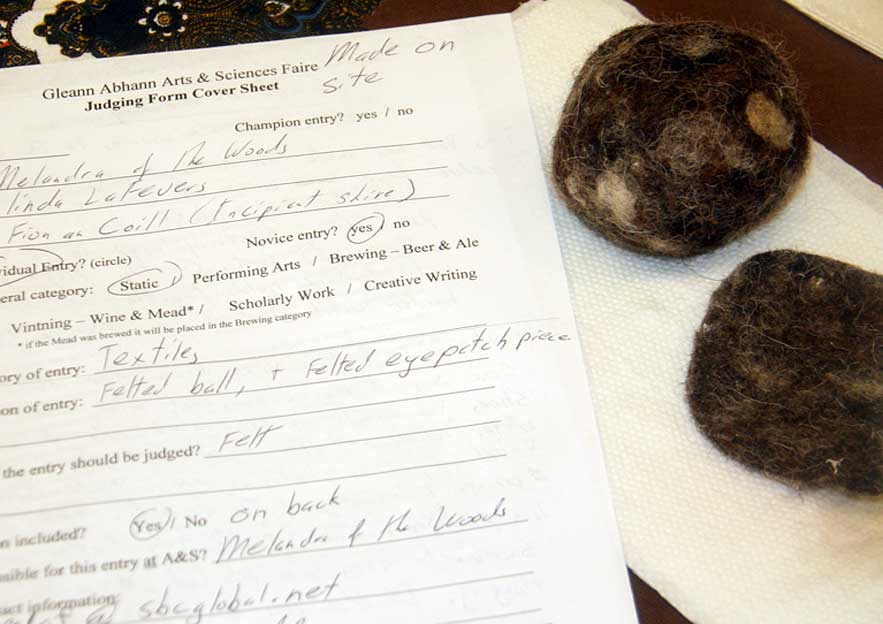 Made on
Gleann Abhann Arts & Sciences Faire
site
Judging Form Cover Sheet
Champion entry? yes / no
Melandra of the Woods
linda LaFevers
Fion an Coill (Incipient shire)
Novice entry? yes / no
vidual Entry? (circle)
eral category: Static / Performing Arts / Brewing – Beer & Ale
Vintning – Wine & Mead* / Scholarly Work / Creative Writing
* if the Mead was brewed it will be placed in the Brewing category
ory of entry: Textiles
on of entry: Felted ball, + felted eyepatch piece
the entry should be judged? Felt
n included? Yes / No on back
sible for this entry at A&S? Melandra of the Woods
act information:
@ sbcglobal.net